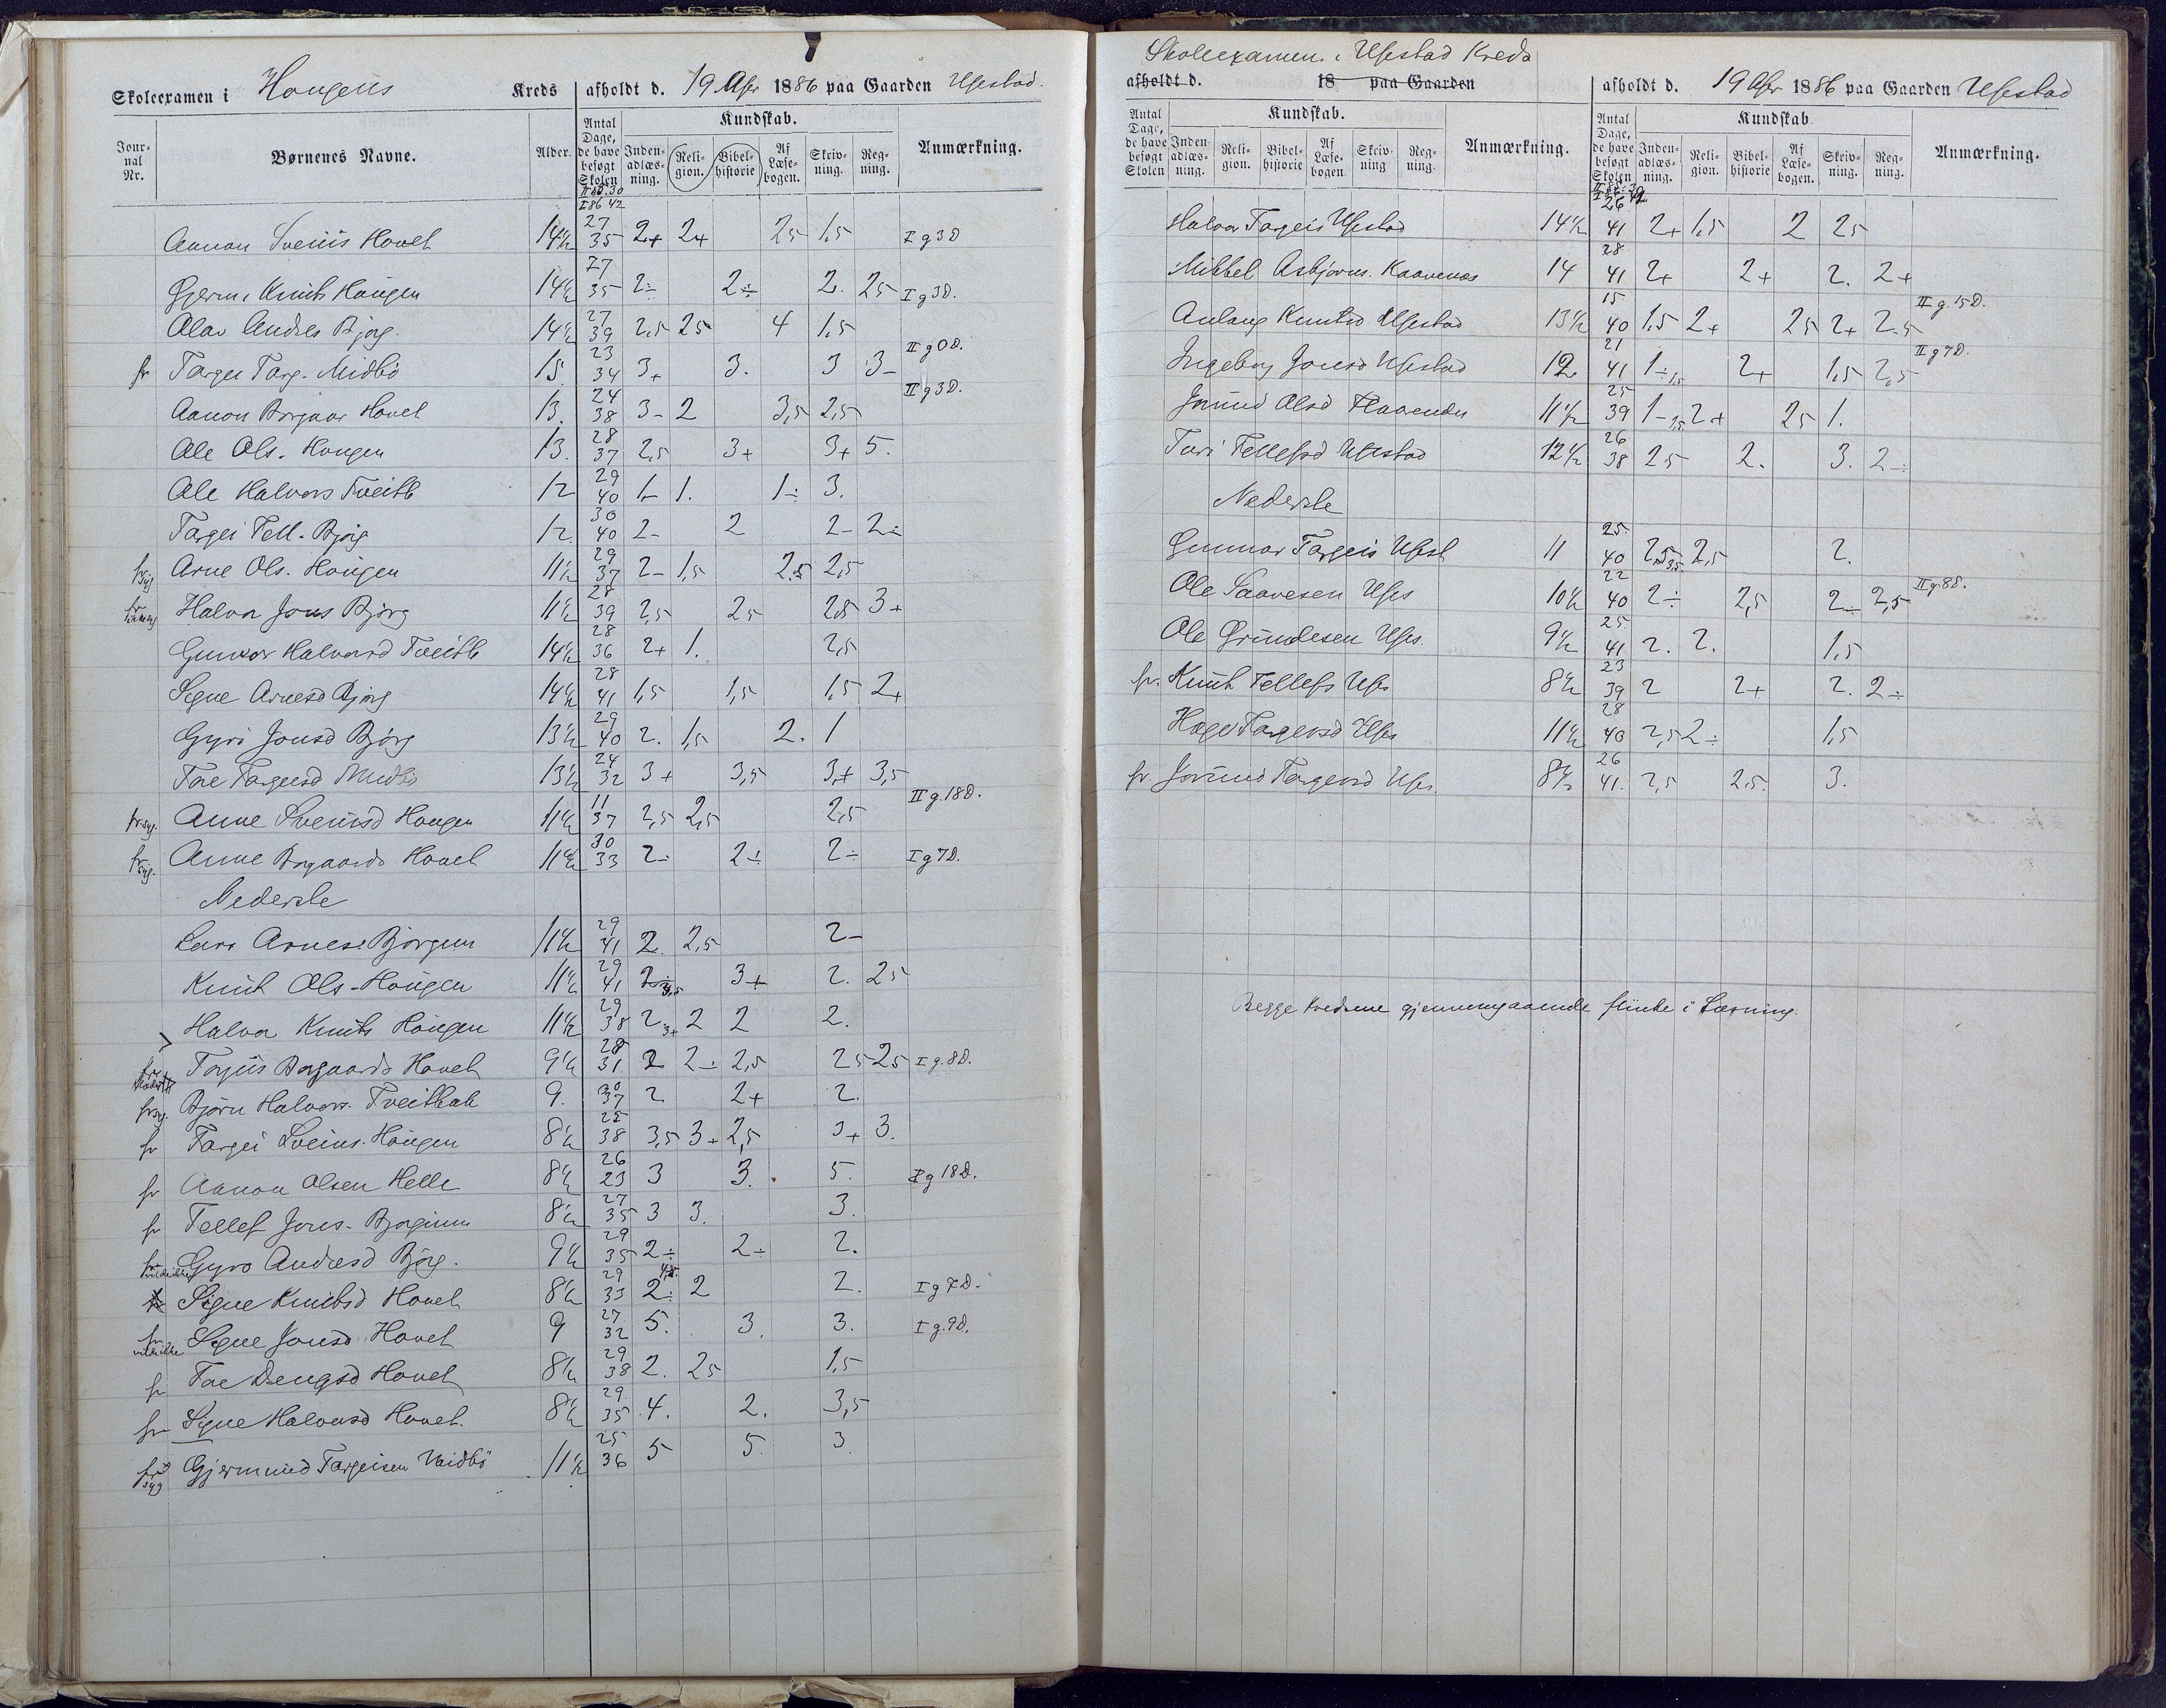 Skoleexamen i Hougens Kreds afholdt d. 19 Apr 1886 paa Gaarden Ufsestad.
Jour-nal Nr. Børnenes Navne. Alder. Antal Dage, de have besøgt Skolen Kundskab. Inden-adlæs-ning. Reli-gion. Bibel-historie Af Læse-bogen. Skriv-ning. Reg-ning. Anmærkning.
II 85.30
I 86 42
Aanon Sveins Hovet 14½ 27 35 2+ 2+ 25 1,5 I g 3 D
Gjerm. Knuts Hougen 14½ 27 35 2÷ 2÷ 2. 25 I g 3D.
Olav Andres Bjørg. 14½ 27 39 2,5 25 4 1,5
fr Targei Targ. Midbö 15 23 34 3+ 3. 3 3- II g 0D.
Aanon Borgaar Hovet 13. 24 38 3- 2 3,5 2,5 II g 3D.
Ole Ols. Hougen 13. 28 37 2,5 3+ 3+ 5.
Ole Halvors Tveitb 12 29 40 1- 1. 1÷ 3.
Targei Tell. Bjørg 12. 30 40 2- 2 2- 2÷
fr syg Arne Ols. Hougen 11½ 29 37 2- 1,5 2.5 2,5
fr Halvor Jons Bjørg 11½ 28 39 2,5 25 25 3+
Gunvor Halvorsd Tveitb 14½ 28 36 2+ 1. 2,5
Signe Arnesd Bjørg 14½ 28 41 1,5 1,5 1,5 2+
Gyro Jonsd Bjørg 13½ 29 40 2. 1,5 2. 1
Tone Targeisd Midbö 13½ 24 32 3+ 3,5 3+ 3,5
fr syg. Anne Sveinsd Hougen 11½ 11 37 2,5 2,5 2,5 II g. 18D.
fr syg. Anne Borgaards Hovet 11½ 30 33 2÷ 2÷ 2÷ I g 7D.
Nederste
Lars Arnes. Bjørgum 11½ 29 41 2. 2,5 2-
Knut Ols. Hougen 11½ 29 41 2÷ 3,5 3+ 2. 25
Halvor Knuts Hougen 11½ 29 38 2 3+ 2 2 2.
fr Torjus Borgaards Hovet 9½ 28 31 2 2÷ 2,5 25 25 I g. 8D.
fr syg. Björn Halvors. Tveitbak 9. 30 37 2 2+ 2.
fr Targei Sveins. Hougen 8½ 25 38 3,5 3+ 2,5 3+ 3.
fr Aanon Olsen Helle 8½ 26 23 3 3. 5. I g 18D.
fr Tellef Jons. Bjørgum 8½ 27 35 3 3. 3.
fr vilde ikke Gyro Andresd Bjørg. 9½ 29 35 2÷ 2÷ 2.
Signe Knutsd Hovet 8½ 29 33 2÷ 2 2. I g 7D.
fr vilde ikke Signe Jonsd Hovet 9 27 32 5. 3. 3. I g. 9D.
fr Tone Dengsd Hovet 8½ 29 38 2. 25 1,5
fr Signe Halvorsd Hovet. 8½ 29 35 4. 2. 3,5
fr syg Gjermund Targeisen Midbö 11½ 25 36 5 5. 3
Skoleexamen i Ufsestad Kreds
afholdt d. 18 paa Gaarden afholdt d. 19 Apr 1886 paa Gaarden Ufsestad
Antal Tage, de have besøgt Skolen Kundskab. Inden-adlæs-ning. Reli-gion. Bibel-historie Af Læse-bogen. Skriv-ning Reg-ning. Anmærkning. Antal Dage, de have besøgt Skolen Kundskab Inden-adlæs-ning. Reli-gion. Bibel-historie Af Læse-bogen. Skriv-ning. Reg-ning. Anmærkning.
Halvor Targeis Ufsestad 14½ 26 41 2+ 1,5 2 25
Mikkel Asbjørns. Kaavenes 14 28 41 2+ 2+ 2. 2+
Aulaug Knutsd Ufsestad 13½ 15 40 1,5 2+ 25 2+ 2.5 II g. 15D.
Ingeborg Jonsd Ufsestad 12 21 41 1÷ 1,5 2+ 1,5 2,5 II g 9D.
Jorund Olsd 11½ 25 39 1- 2+ 25 1.
Turi Tellefsd Ufsestad 12½ 26 38 25 2. 3. 2÷
Nederste
Gunnar Targeis Ufsest 11 25. 40 2,5 3,5 2,5 2.
Ole Saavesen Ufses 10½ 22 40 2÷ 2,5 2÷ 2,5 II g. 8D.
Ole Grundesen Ufses. 9½ 25 41 2. 2. 1,5
fr. Knut Tellefs Ufs 8½ 23 39 2 2+ 2. 2÷
Hæge Targeisd Ufses 11½ 28 40 2,5 2÷ 1,5
fr. Jorund Targeisd Ufses. 8½ 26 41. 2,5 2.5. 3.
Begge Kredsene gjennemgaaende flinke i Læsning.